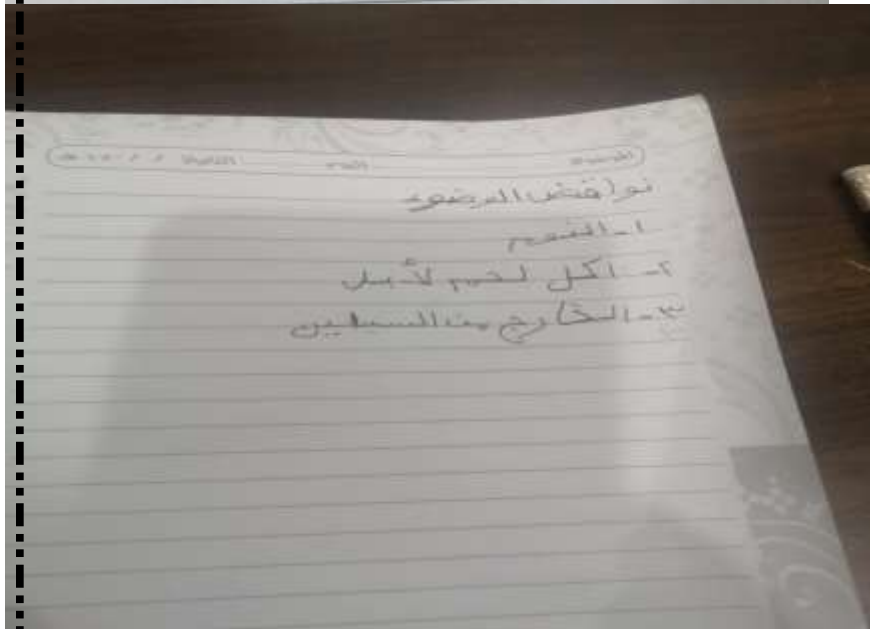 نواقض الوضوء
١- النوم
٢- اكل لحم لأبل
٣- الخارج من السبيلين